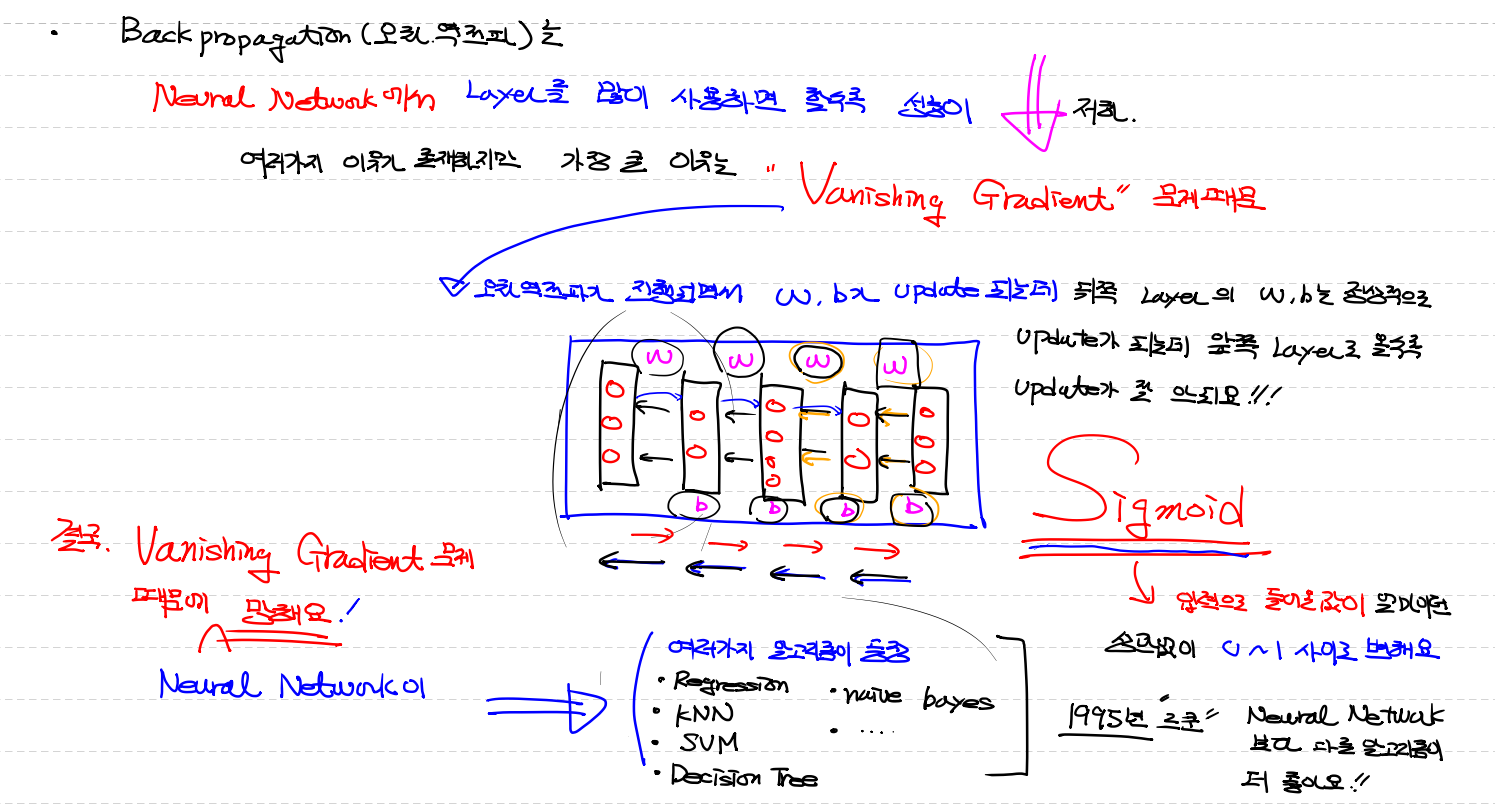 · Back propagation (오차.역전파)는
Neural Network에서 Layer를 많이 사용하면 할수록 성능이 저하.
여러가지 이유가 존재하지만 가장 큰 이유는 "Vanishing Gradient" 문제때문
오차역전파가 진행되면서 W, b가 update 되는데 뒤쪽 Layer의 W, b는 정상적으로
update가 되는데 앞쪽 Layer로 올수록
update가 잘 안되요!!!
W W W W
b b b b
Sigmoid
입력으로 들어온값이 얼마이던
상관없이 0 ~ 1 사이로 변해요
결국. Vanishing Gradient 문제
때문에 망해요!
Neural Network이
여러가지 알고리즘이 등장
· Regression · naive bayes
· KNN · ....
· SVM
· Decision Tree
1995년 "르쿤" Neural Network
보다 다른 알고리즘이
더 좋아요!!